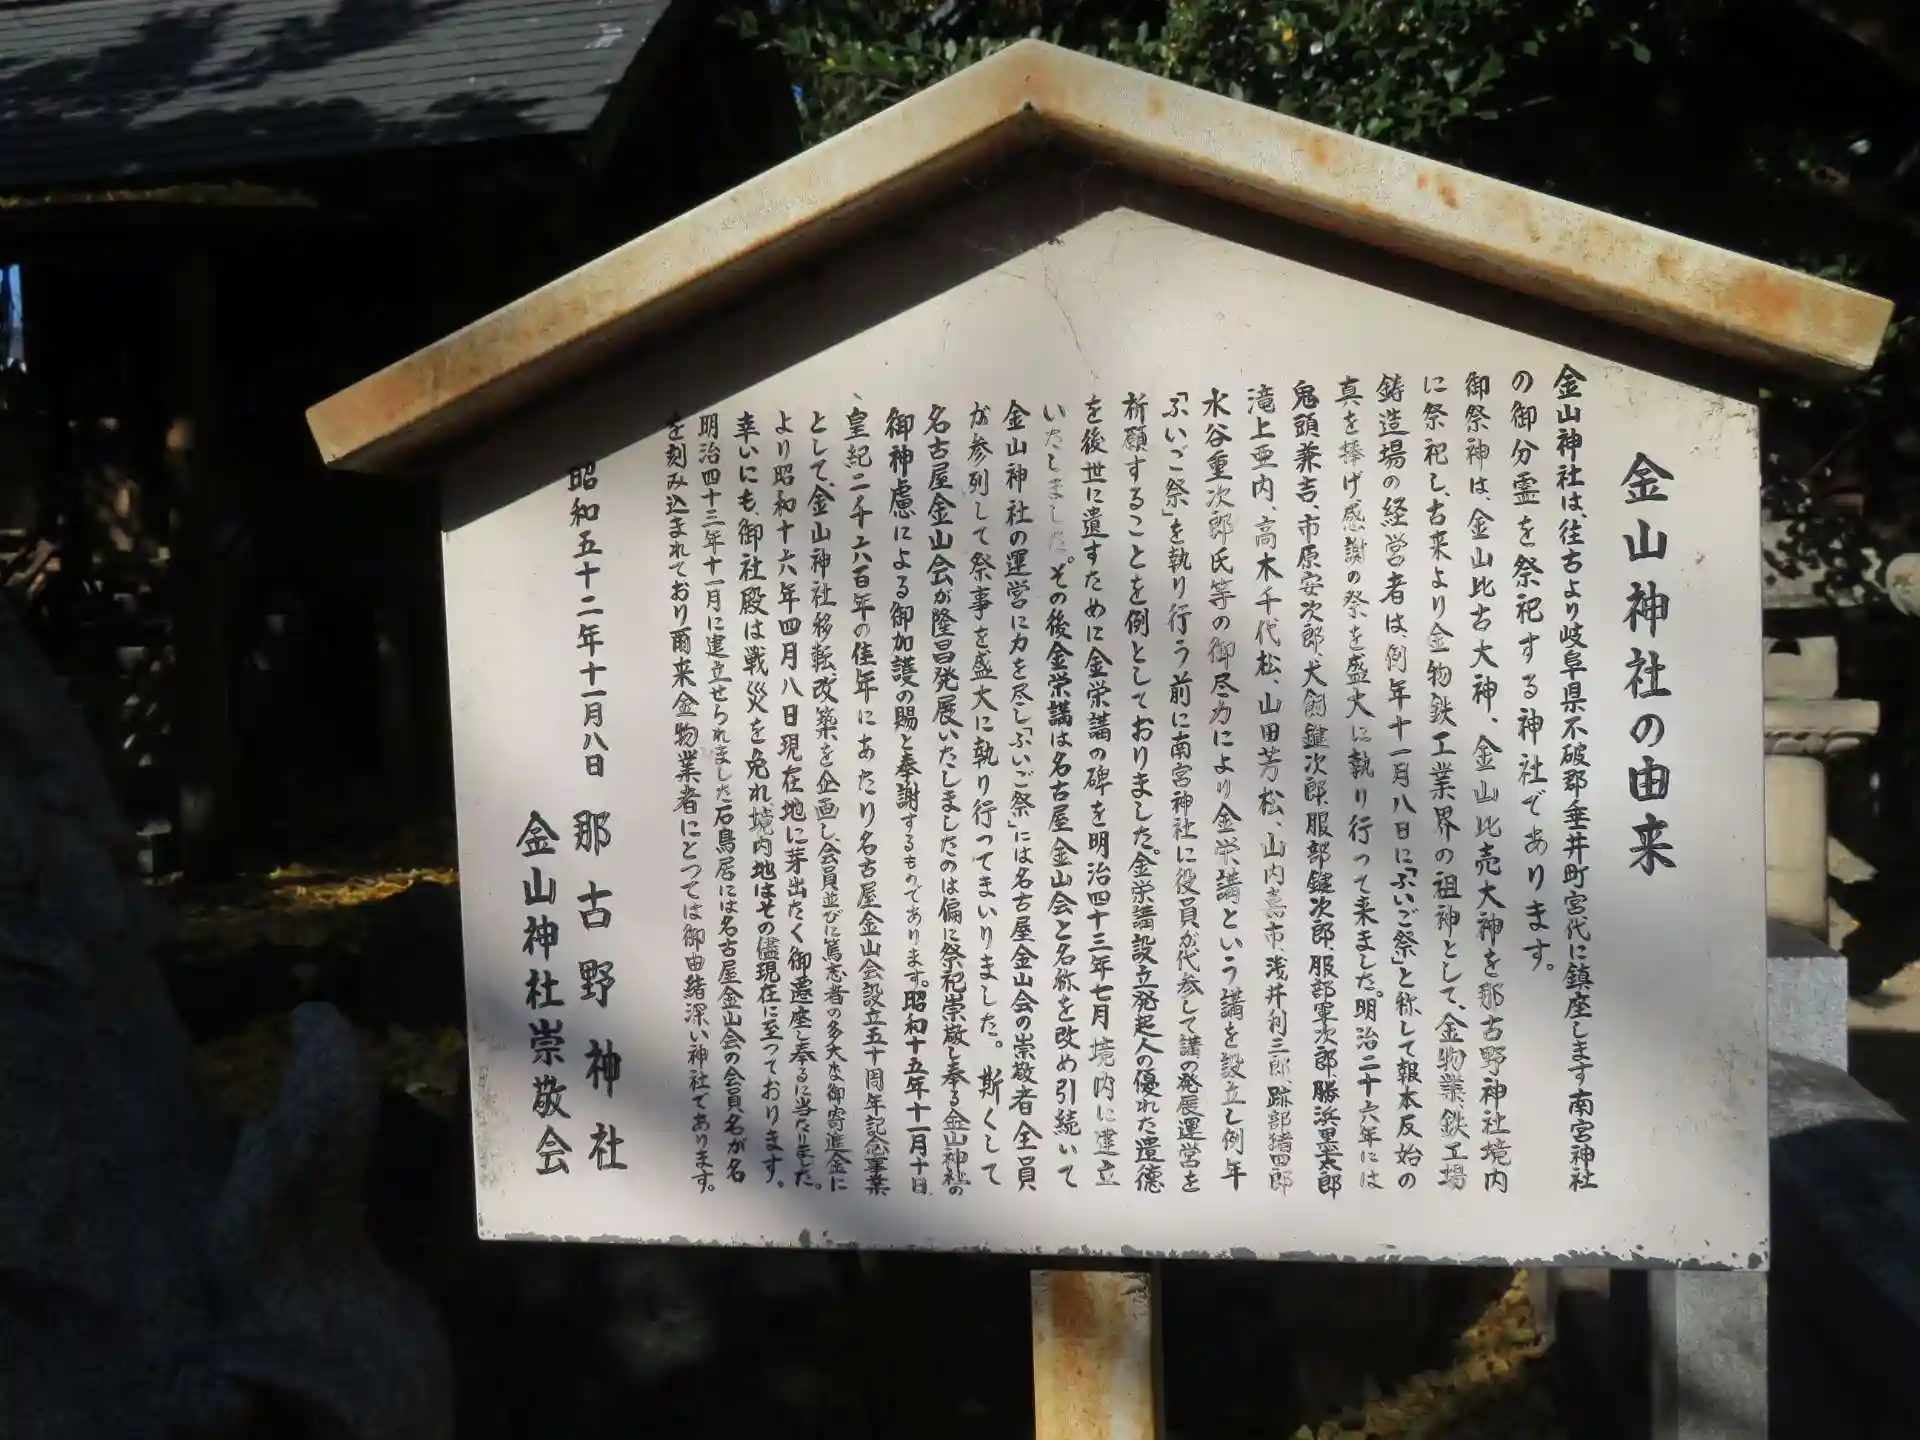 金山神社の由来
金山神社は、往古より岐阜県不破郡垂井町宮代に鎮座します南宮神社
の御分霊を祭祀する神社であります。
御祭神は、金山比古大神、金山比売大神を那古野神社境内
に祭祀し、古来より金物鉄工業界の祖神として、金物業、鉄工場
鋳造場の経営者は、例年十一月八日に「ふいご祭」と称して報本反始の
真を捧げ感謝の祭を盛大に執り行って来ました。明治二十六年には
鬼頭兼吉、市原安次郎、犬飼鍵次郎、服部鍵次郎、服部軍次郎、勝浜黒太郎
滝上亜内、高木千代松、山田芳松、山内嘉市、浅井利三郎、跡部猪四郎
水谷重次郎氏等の御尽力により金栄講という講を設立し例年
「ふいご祭」を執り行う前に南宮神社に役員が代参して講の発展運営を
祈願することを例としておりました。金栄講設立発起人の優れた遺徳
を後世に遺すために金栄講の碑を明治四十三年七月境内に建立
いたしました。その後金栄講は名古屋金山会と名称を改め引続いて
金山神社の運営に力を尽し「ふいご祭」には名古屋金山会の崇敬者全員
が参列して祭事を盛大に執り行ってまいりました。斯くして
名古屋金山会が隆昌発展いたしましたのは偏に祭祀崇敬し奉る金山神社の
御神慮による御加護の賜と奉謝するものであります。昭和十五年十一月十日
、皇紀二千六百年の佳年にあたり名古屋金山会設立五十周年記念事業
として、金山神社移転改築を企画し、会員並びに篤志者の多大な御寄進金に
より昭和十六年四月八日現在地に芽出たく御遷座し奉るに当たりました。
幸いにも、御社殿は戦災を免れ、境内地はその儘現在に至っております。
明治四十三年十一月に建立せられました石鳥居には名古屋金山会の会員名が名
を刻み込まれており爾来金物業者にとっては御由緒深い神社であります。
昭和五十二年十一月八日 那古野神社
金山神社崇敬会